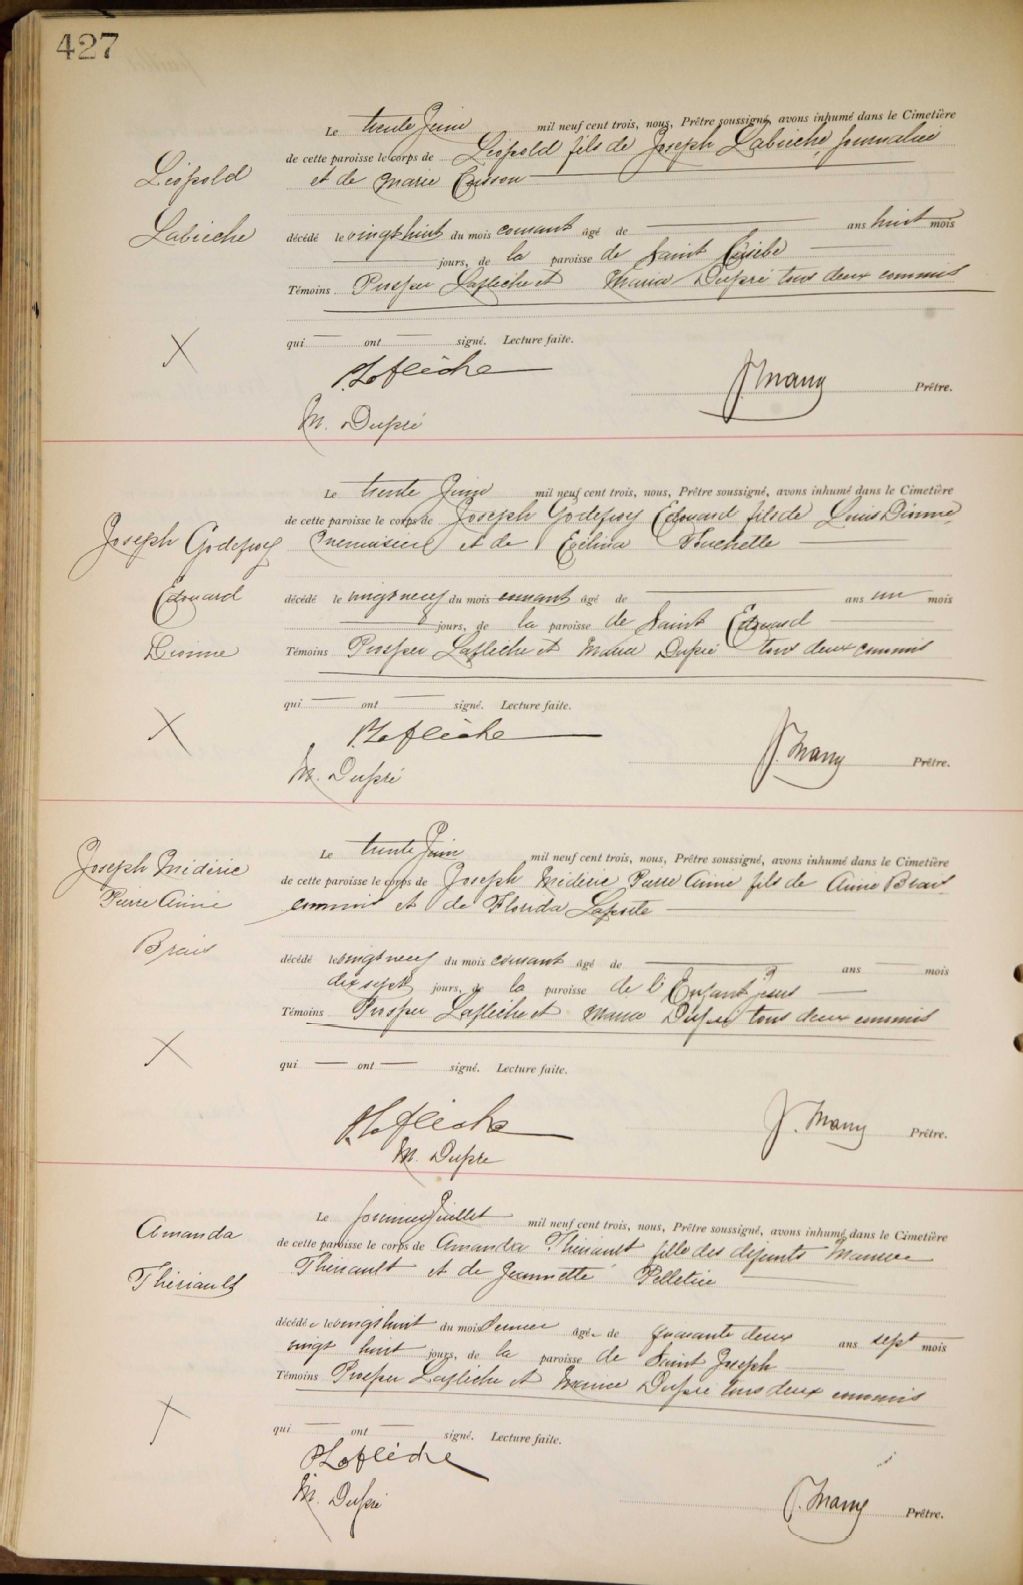 427
Le trente Juin mil neuf cent trois, nous, Prêtre soussigné, avons inhumé dans le Cimetière
de cette paroisse le corps de Léopold fils de Joseph Labrèche, journalier
Léopold
et de Marie Crisson
Labrèche
décédé le vingt huit du mois courant âgé de ans huit mois
jours, de la paroisse de Saint Eusèbe
Témoins Prosper Laflèche et Maria Dupré tous deux commis
qui ont signé. Lecture faite.
X
P. Laflèche
J. Many Prêtre.
M. Dupré
Le trente Juin mil neuf cent trois, nous, Prêtre soussigné, avons inhumé dans le Cimetière
de cette paroisse le corps de Joseph Godefroy Edouard fils de Louis Dionne,
Joseph Godefroy
menuisier et de Evélina
Edouard
décédé le vingt neuf du mois courant âgé de ans un mois
jours, de la paroisse de Saint Edouard
Dionne
Témoins Prosper Laflèche et Maria Dupré tous deux commis
qui ont signé. Lecture faite.
X
P. Laflèche
J. Many Prêtre.
M. Dupré
Le trente Juin mil neuf cent trois, nous, Prêtre soussigné, avons inhumé dans le Cimetière
Joseph Médéric
de cette paroisse le corps de Joseph Médéric Pierre Aimé fils de Aimé Brais
Pierre Aimé
commis et de Florida Laporte
Brais
décédé le vingt neuf du mois courant âgé de ans mois
dix sept jours, de la paroisse de l'Enfant Jésus
Témoins Prosper Laflèche et Maria Dupré tous deux commis
X
qui ont signé. Lecture faite.
P. Laflèche
J. Many Prêtre.
M. Dupré
Le premier Juillet mil neuf cent trois, nous, Prêtre soussigné, avons inhumé dans le Cimetière
Amanda
de cette paroisse le corps de Amanda Thériault fille des défunts
Thériault et de Jeannette Pelletier
Thériault
décédée le vingt huit du mois dernier âgée de quarante deux ans sept mois
vingt huit jours, de la paroisse de Saint Joseph
Témoins Prosper Laflèche et Maria Dupré tous deux commis
X
qui ont signé. Lecture faite.
P. Laflèche
M. Dupré
J. Many Prêtre.